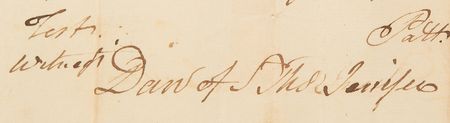 Test. Patt.
Witness: Dan of St Thos Jenifer